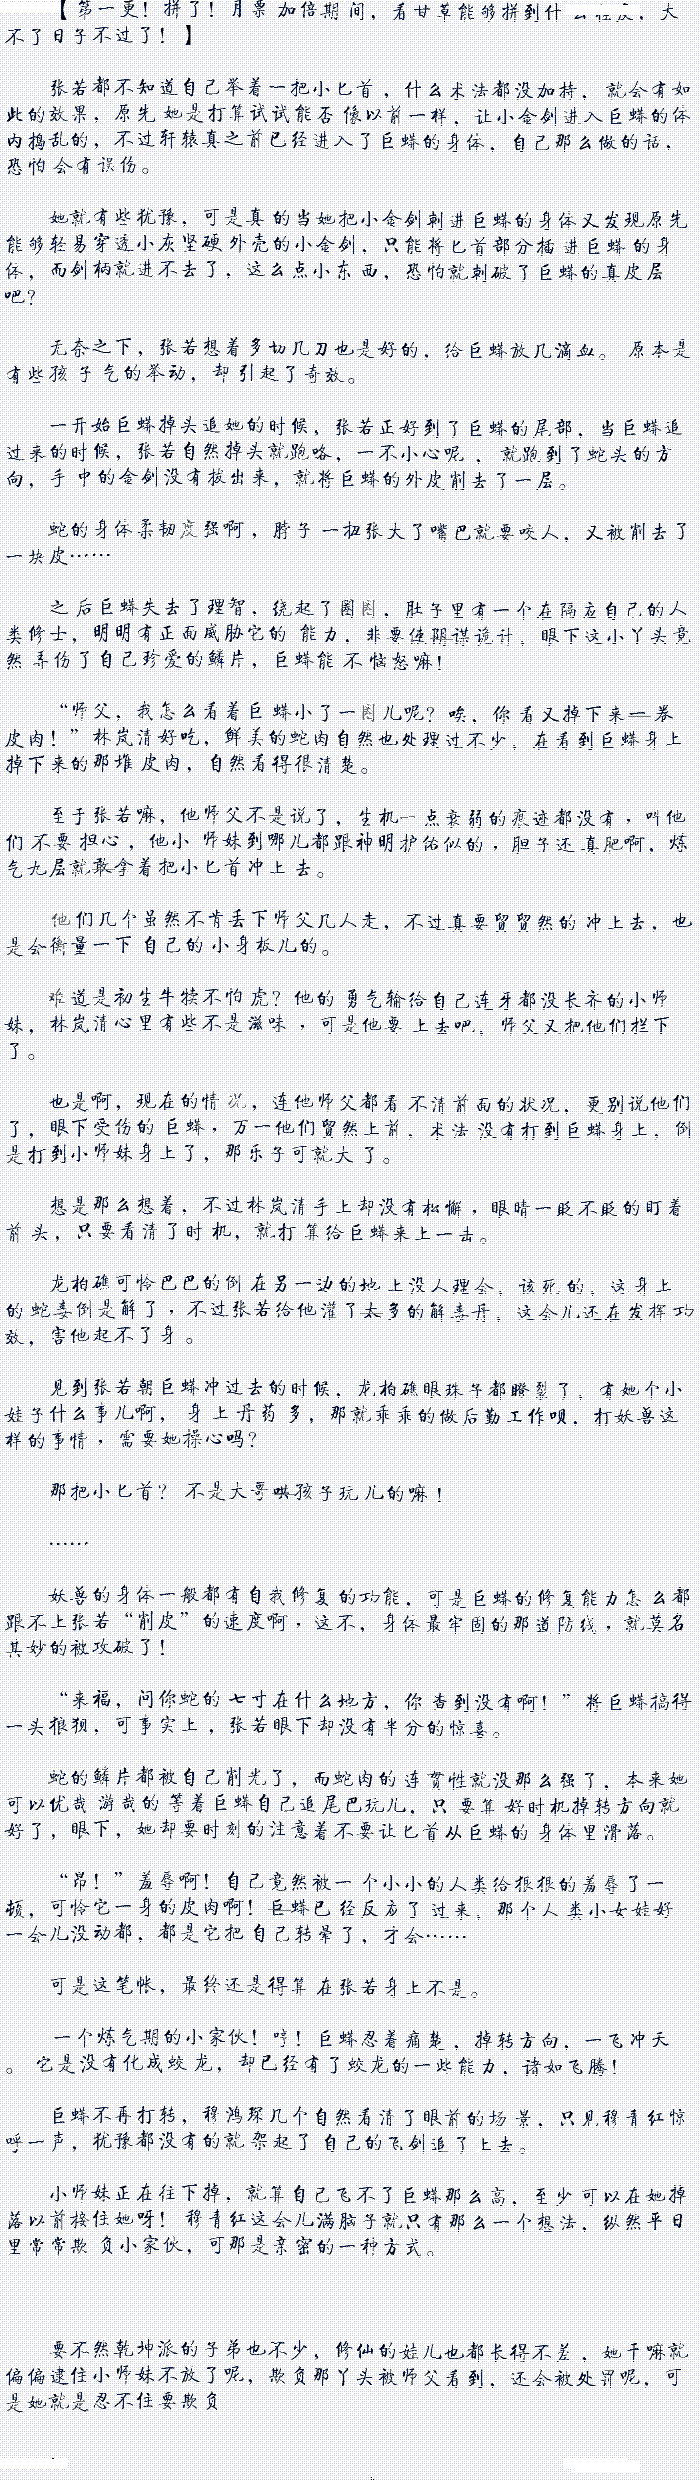 【 第一更！拼了！月票加倍期间，看甘草能够拼到什 大
不了日子不过了！】
张若都不知道自己举着一把小匕首，什么术法都没加持，就会有如
此的效果，原先她是打算试试能否像以前一样，让小金剑进入巨蟒的体
内捣乱的，不过轩辕真之前已经进入了巨蟒的身体，自己那么做的话，
恐怕会有误伤。
她就有些犹豫，可是真的当她把小金剑刺进巨蟒的身体又发现原先
能够轻易穿透小灰坚硬外壳的小金剑，只能将匕首部分插进巨蟒的身
体，而剑柄就进不去了，这么点小东西，恐怕就刺破了巨蟒的真皮层
吧？
无奈之下，张若想着多切几刀也是好的，给巨蟒放几滴血。原本是
有些孩子气的举动，却引起了奇效。
一开始巨蟒掉头追她的时候，张若正好到了巨蟒的尾部，当巨蟒追
过来的时候，张若自然掉头就跑咯，一不小心呢，就跑到了蛇头的方
向，手中的金剑没有拔出来，就将巨蟒的外皮削去了一层。
蛇的身体柔韧度强啊，脖子一扭张大了嘴巴就要咬人，又被削去了
一块皮……
之后巨蟒失去了理智，绕起了圈圈，肚子里有一个在隔应自己的人
类修士，明明有正面威胁它的能力，非要使阴谋诡计，眼下这小丫头竟
然弄伤了自己珍爱的鳞片，巨蟒能不恼怒嘛！
“师父，我怎么看着巨蟒小了一圈儿呢？唉，你看又掉下来一卷
皮肉！”林岚清好吃，鲜美的蛇肉自然也处理过不少，在看到巨蟒身上
掉下来的那堆皮肉，自然看得很清楚。
至于张若嘛，他师父不是说了，生机一点衰弱的痕迹都没有，叫他
们不要担心，他小师妹到哪儿都跟神明护佑似的，胆子还真肥啊，炼
气九层就敢拿着把小匕首冲上去。
他们几个虽然不肯丢下师父几人走，不过真要贸贸然的冲上去，也
是会衡量一下自己的小身板儿的。
难道是初生牛犊不怕虎？他的勇气输给自己连牙都没长齐的小师
妹，林岚清心里有些不是滋味，可是他要上去吧，师父又把他们拦下
了。
也是啊，现在的情况，连他师父都看不清前面的状况，更别说他们
了，眼下受伤的巨蟒，万一他们贸然上前，术法没有打到巨蟒身上，倒
是打到小师妹身上了，那乐子可就大了。
想是那么想着，不过林岚清手上却没有松懈，眼睛一眨不眨的盯着
前头，只要看清了时机，就打算给巨蟒来上一击。
龙柏礁可怜巴巴的倒在另一边的地上没人理会，该死的，这身上
的蛇毒倒是解了，不过张若给他灌了太多的解毒丹，这会儿还在发挥功
效，害他起不了身。
见到张若朝巨蟒冲过去的时候，龙柏礁眼珠子都瞪裂了，有她个小
娃子什么事儿啊，身上丹药多，那就乖乖的做后勤工作呗，打妖兽这
样的事情，需要她操心吗？
那把小匕首？不是大哥哄孩子玩儿的嘛！
……
妖兽的身体一般都有自我修复的功能，可是巨蟒的修复能力怎么都
跟不上张若“削皮”的速度啊，这不，身体最牢固的那道防线，就莫名
其妙的被攻破了！
“来福，问你蛇的七寸在什么地方，你查到没有啊！”将巨蟒搞得
一头狼狈，可事实上，张若眼下却没有半分的惊喜。
蛇的鳞片都被自己削光了，而蛇肉的连贯性就没那么强了，本来她
可以优哉游哉的等着巨蟒自己追尾巴玩儿，只要算好时机掉转方向就
好了，眼下，她却要时刻的注意着不要让匕首从巨蟒的身体里滑落。
“昂！”羞辱啊！自己竟然被一个小小的人类给狠狠的羞辱了一
顿，可怜它一身的皮肉啊！巨蟒已经反应了过来，那个人类小女娃好
一会儿没动都，都是它把自己转晕了，才会……
可是这笔帐，最终还是得算在张若身上不是。
一个炼气期的小家伙！哼！巨蟒忍着痛楚，掉转方向，一飞冲天
。它是没有化成蛟龙，却已经有了蛟龙的一些能力，诸如飞腾！
巨蟒不再打转，穆鸿琛几个自然看清了眼前的场景，只见穆青红惊
呼一声，犹豫都没有的就架起了自己的飞剑追了上去。
小师妹正在往下掉，就算自己飞不了巨蟒那么高，至少可以在她掉
落以前接住她呀！穆青红这会儿满脑子就只有那么一个想法，纵然平日
里常常欺负小家伙，可那是亲密的一种方式。
要不然乾坤派的子弟也不少，修仙的娃儿也都长得不差，她干嘛就
偏偏逮住小师妹不放了呢，欺负那丫头被师父看到，还会被处罚呢，可
是她就是忍不住要欺负